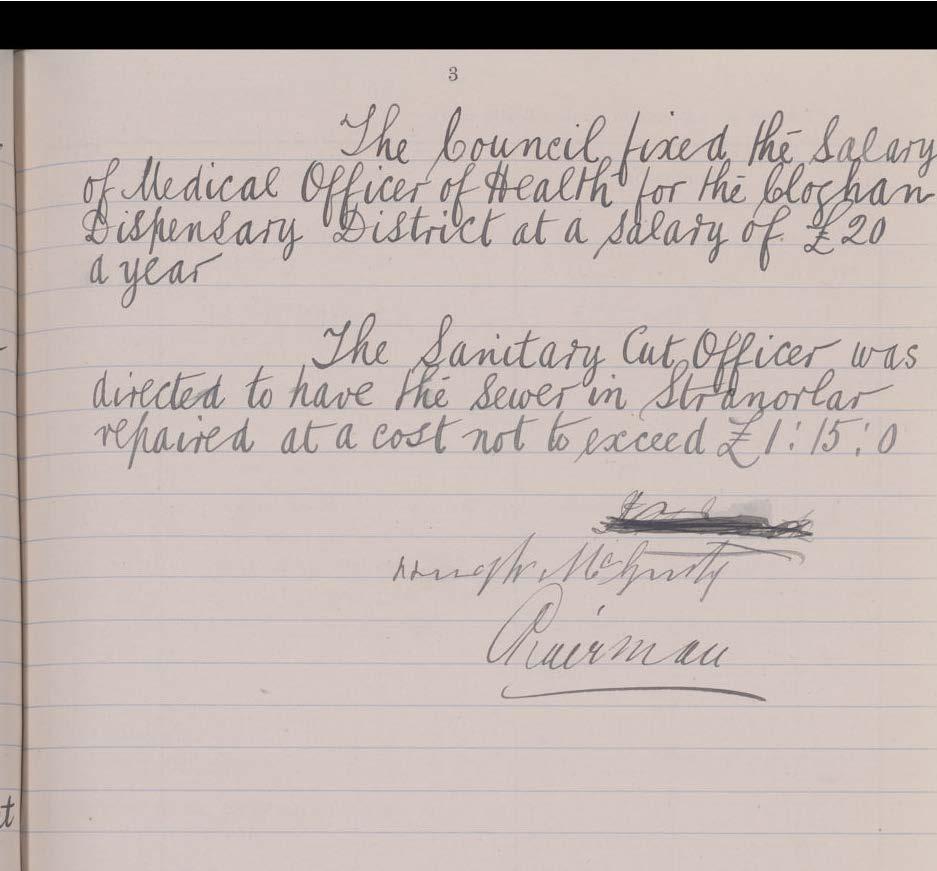 3
The Council fixed the Salary
of Medical Officer of Health for the Cloghan
Dispensary District at a salary of £20
a year
The Sanitary Cut Officer was
directed to have the Sewer in Stranorlar
repaired at a cost not to exceed £1:15:0
Chairman
t